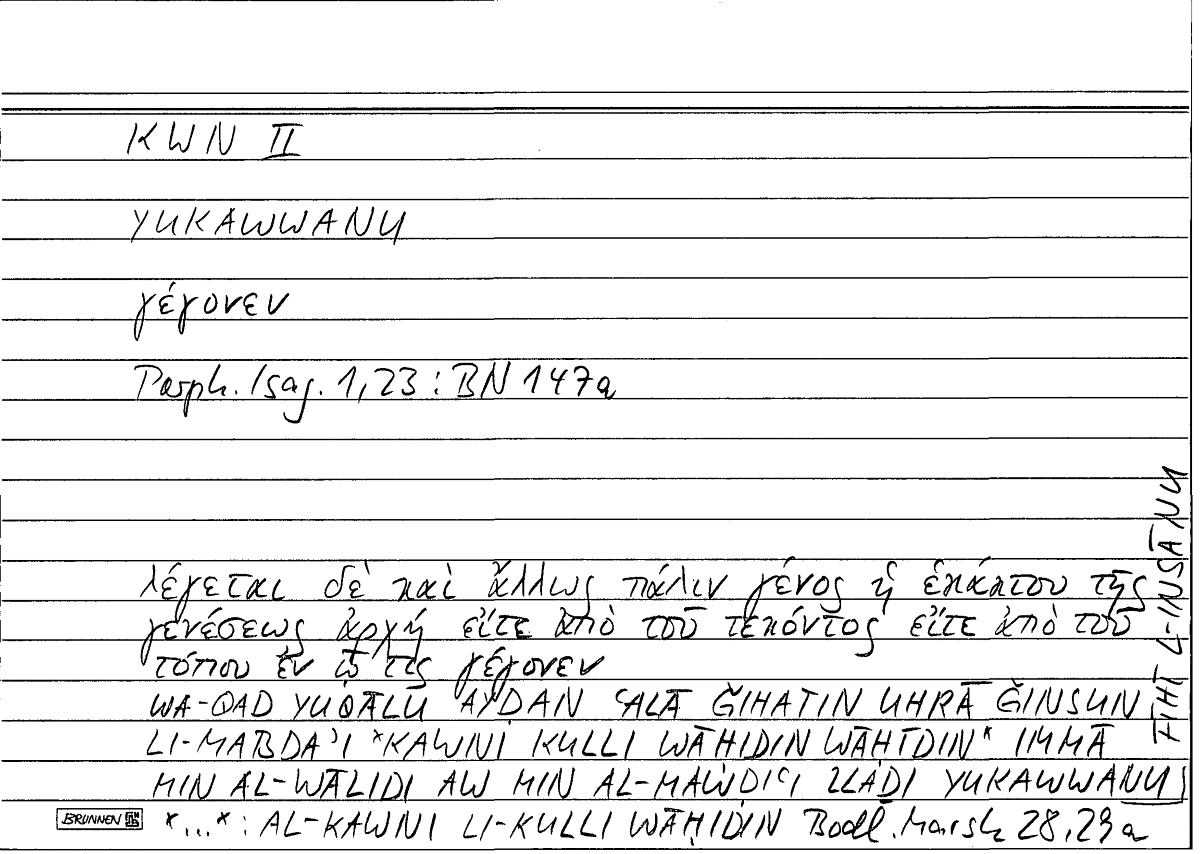 KWN II
YUKAWWANU
γέγονεν
Porph. Isag. 1,23 : BN 147a
λέγεται δὲ καὶ ἄλλως πάλιν γένος ἡ ἑκάστου τῆς
γενέσεως ἀρχὴ εἴτε ἀπὸ τοῦ τεκόντος εἴτε ἀπὸ τοῦ
τόπου ἐν ᾧ τις γέγονεν
WA-QAD YUQĀLU AYḌAN ʿALĀ ǦIHATIN UḪRĀ ǦINSUN
LI-MABDAʾI *KAWNI KULLI WĀḤIDIN WĀḤIDIN* IMMĀ
MIN AL-WĀLIDI AW MIN AL-MAWḌIʿI LLAḎI YUKAWWANU
FIHI L-INSĀNU
BRUNNEN
*...* : AL-KAWNI LI-KULLI WĀḤIDIN Bodl. Marsh 28,29a